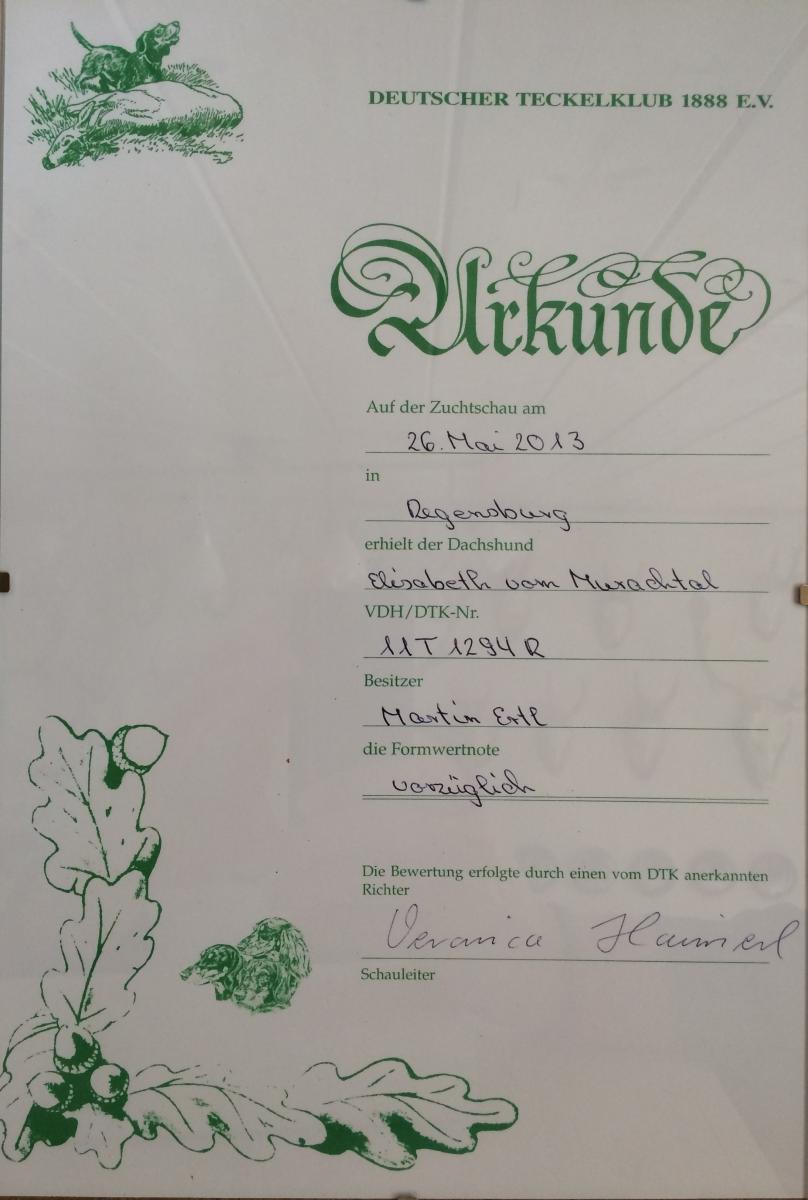 DEUTSCHER TECKELKLUB 1888 E.V.
Urkunde
Auf der Zuchtschau am
26. Mai 2013
in
Regensburg
erhielt der Dachshund
Elisabeth vom Murachtal
VDH/DTK-Nr.
11T 1294 R
Besitzer
Martin Ertl
die Formwertnote
vorzüglich
Die Bewertung erfolgte durch einen vom DTK anerkannten
Richter
Veronica Haimerl
Schauleiter